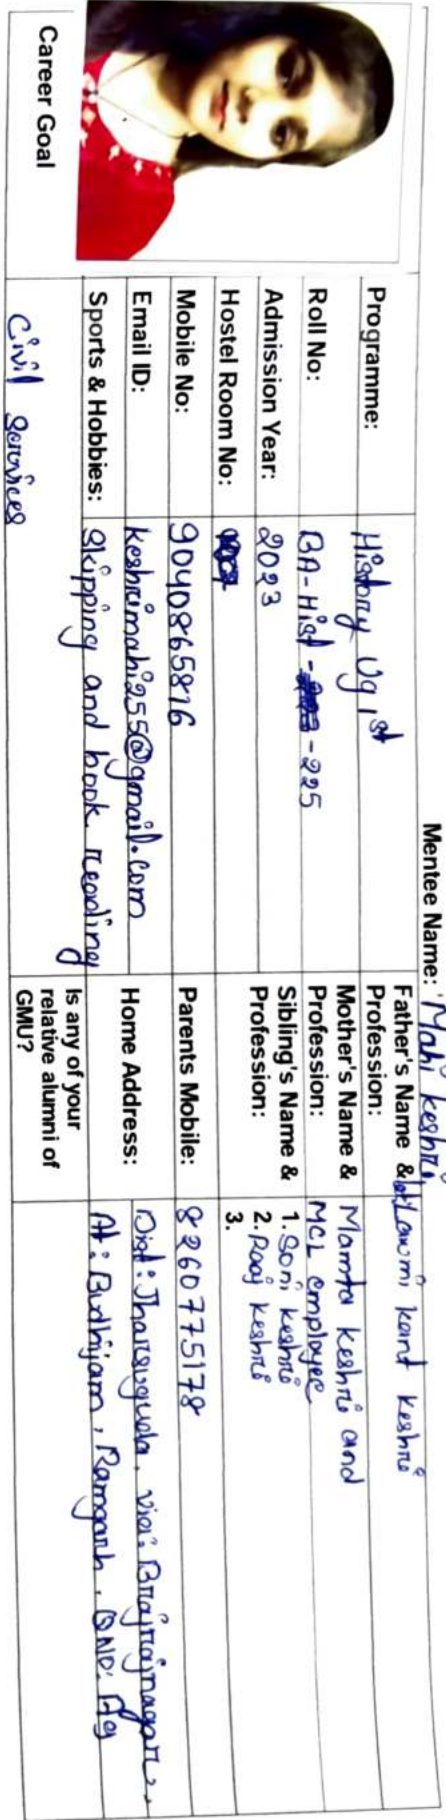 Mentee Name: Mahi keshri
Programme: History Ug 1st
Father's Name & Profession: Laxmi kant keshri
Roll No: BA-Hist - - 225
Mother's Name & Profession: Mamta keshri and MCL employee
Admission Year: 2023
Sibling's Name & Profession: 1. Soni keshri
2. Raaj keshri
3.
Hostel Room No:
Mobile No: 9040865816
Parents Mobile: 8260775178
Email ID: keshrimahi255@gmail.com
Home Address: Dist: Jharsuguda, Via: Brajrajnagar,
At: Budhijam, Ramgarh, QNO: A9
Sports & Hobbies: Skipping and book reading
Is any of your
relative alumni of
GMU?
Career Goal Civil Services